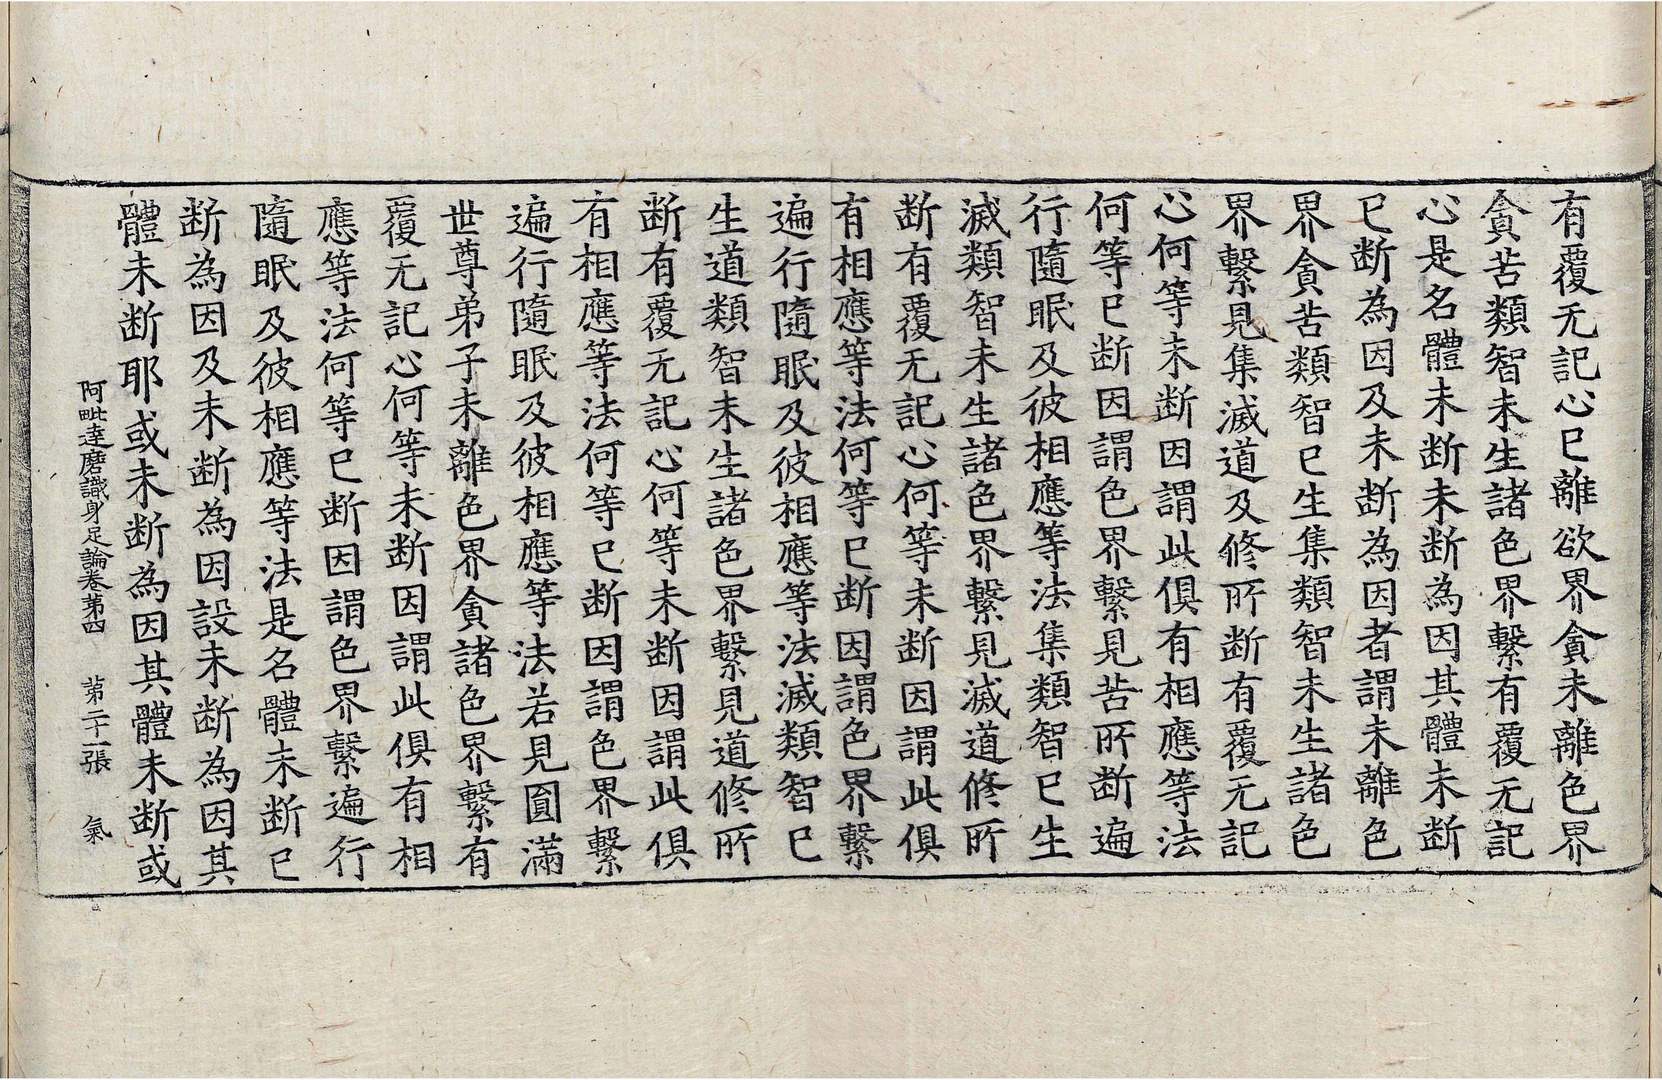 有覆无記心已離欲界貪未離色界
貪苦類智未生諸色界繫有覆无記
心是名體未断未断為因其體未断
已断為因及未断為因者謂未離色
界貪苦類智已生集類智未生諸色
界繫見集滅道及修所断有覆无記
心何等未断因謂此俱有相應等法
何等已断因謂色界繫見苦所断遍
行隨眠及彼相應等法集類智已生
滅類智未生諸色界繫見滅道修所
断有覆无記心何等未断因謂此俱
有相應等法何等已断因謂色界繫
遍行隨眠及彼相應等法滅類智已
生道類智未生諸色界繫見道修所
断有覆无記心何等未断因謂此俱
有相應等法何等已断因謂色界繫
遍行隨眠及彼相應等法若見圓滿
世尊弟子未離色界貪諸色界繫有
覆无記心何等未断因謂此俱有相
應等法何等已断因謂色界繫遍行
隨眠及彼相應等法是名體未断已
断為因及未断為因設未断為因其
體未断耶或未断為因其體未断或
阿毗達磨識身足論卷第四 第二十二張 氣